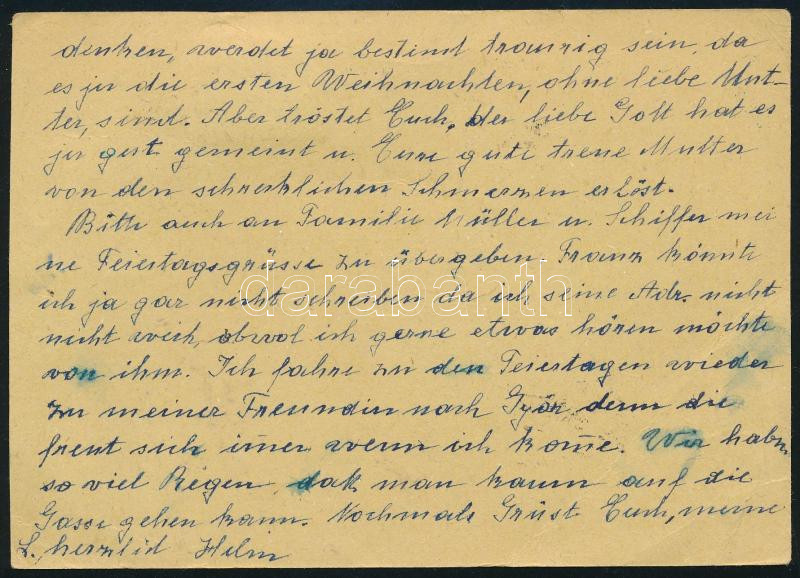 denken, werdet ja bestimt traurig sein, da
es ja die ersten Weihnachten, ohne liebe Mut-
ter, sind. Aber tröstet Euch, der liebe Gott hat es
ja gut gemeint u. Eure gute treue Mutter
von den schrecklichen Schmerzen erlöst.
Bitte auch an Familie Müller u. Schiffer mei
ne Feiertagsgrüsse zu übergeben. Franz könnte
ich ja gar nicht schreiben da ich seine Adr. nicht
nicht weis, obwol ich gerne etwas hören möchte
von ihm. Ich fahre zu den Feiertagen wieder
zu meiner Freundin nach Györ denn die
freut sich imer wenn ich kome. Wir haben
so viel Regen, dak man kaum auf die
Gasse gehen kann. Nochmals Grüst Euch, meine
L. herzlid
darabanth